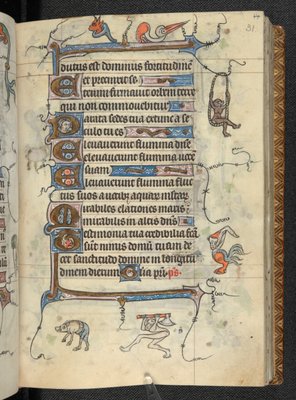 31
dutus est dominus fortitudinē
et precinxit se.
Etenim firmauit orbem terre
qui non commouebitur
Parata sedes tua ex tunc a se
culo tu es
Eleuauerunt flumina d̄ne
eleuauerunt flumina uocē
suam
Eleuauerunt flumina fluc
tus suos a uocibȝ aquaꝝ multaꝝ
Mirabiles elationes maris
mirabilis in altis dn̄s
Testimonia tua credibilia fcā
sūt nimis domū tuam de
cet sanctitudo domine in longitu
dinem dierum Glīa pr̄i. ps̄.